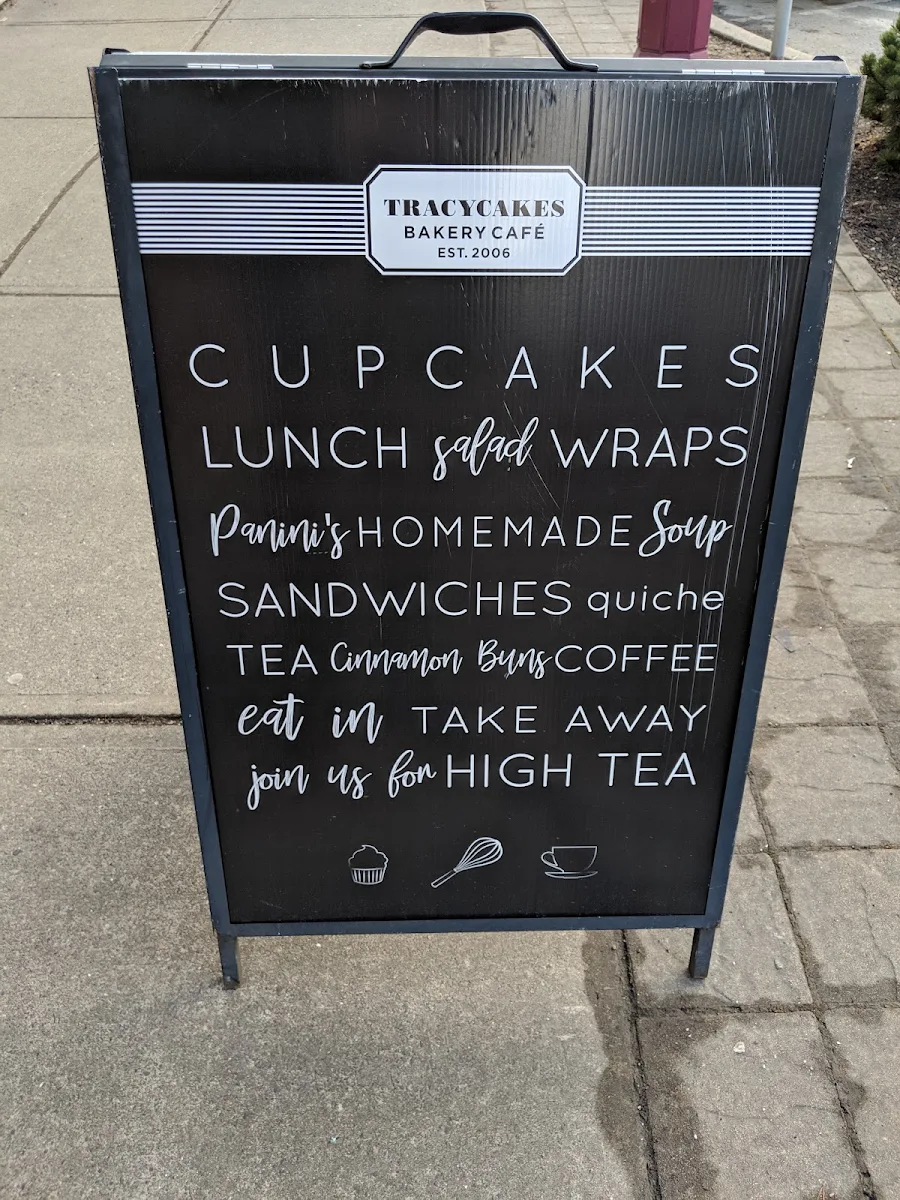 TRACYCAKES
BAKERY CAFÉ
EST. 2006
CUPCAKES
LUNCH salad WRAPS
Panini's HOMEMADE Soup
SANDWICHES quiche
TEA Cinnamon Buns COFFEE
eat in TAKE AWAY
join us for HIGH TEA